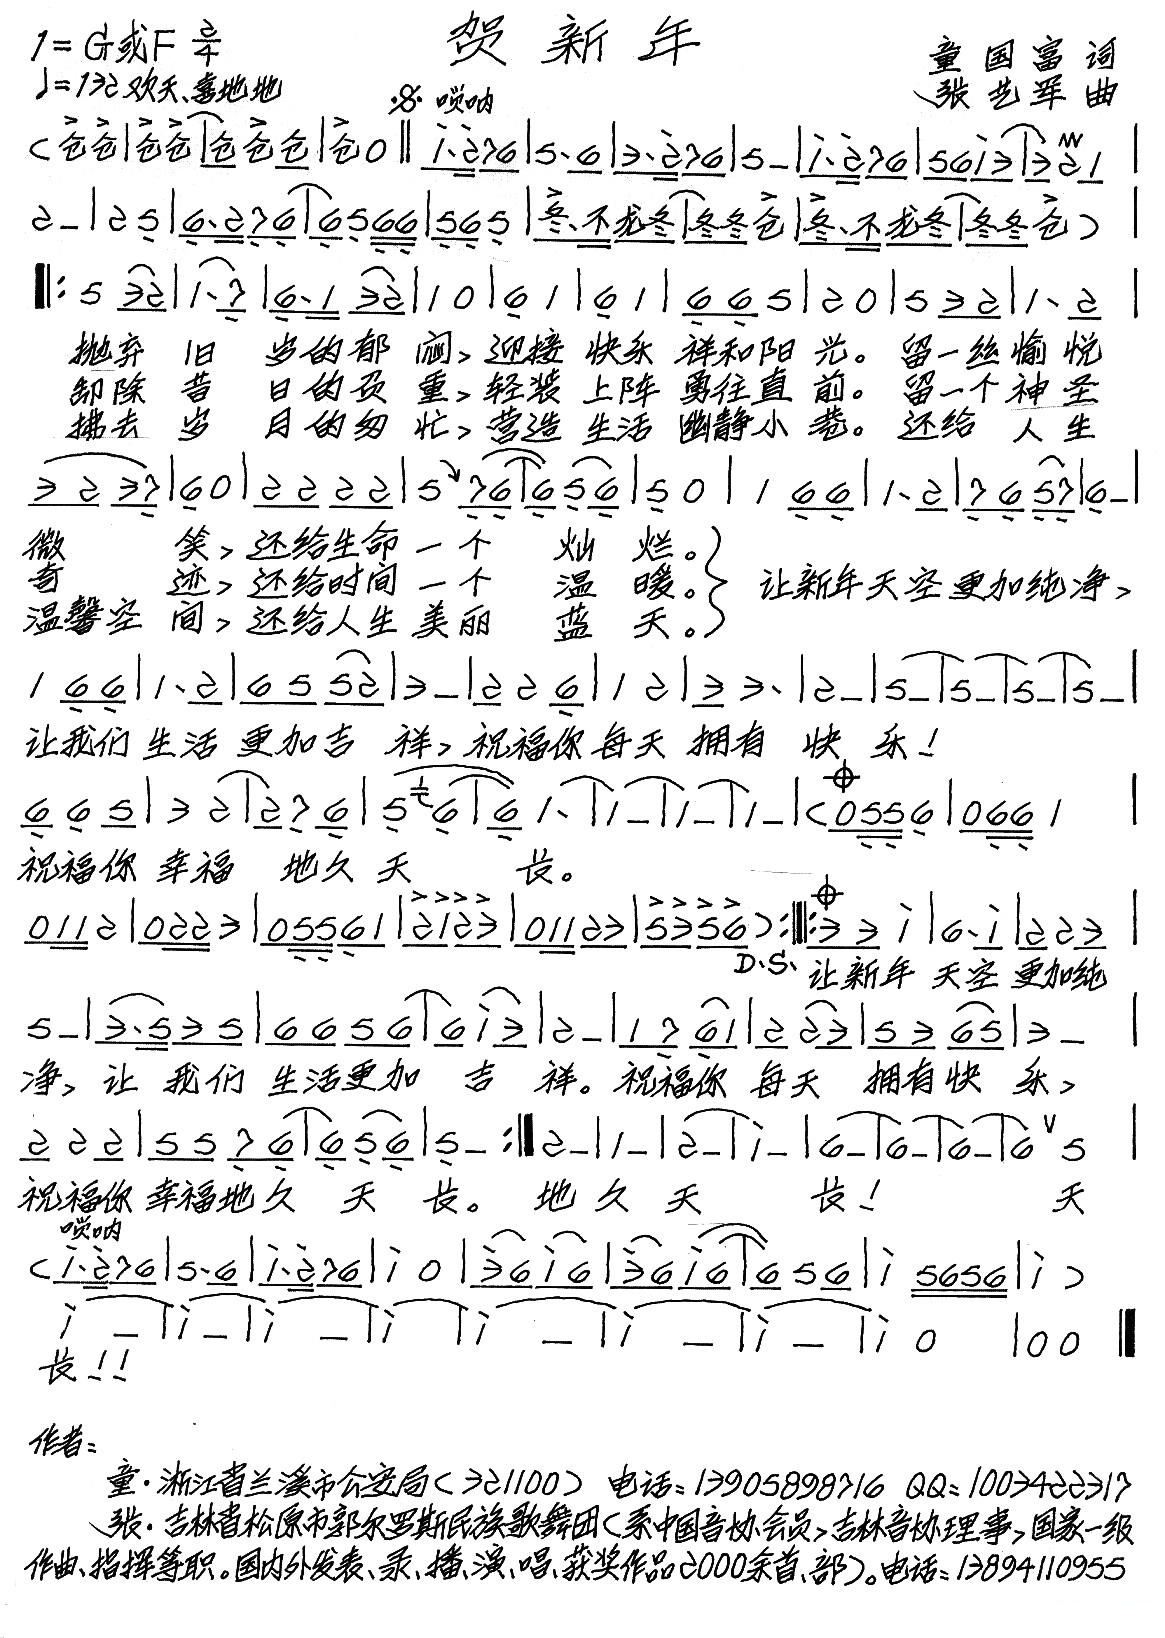 贺新年
1=G或F 2/4
童国富 词
♩=132 欢天、喜地地
张艺军 曲
唢呐
(仓仓|仓仓仓|仓仓仓|仓0‖i·276|5·6|3·276|5-|i·276|56i3|321|
2-|25|6·276|6566|565|冬·不龙冬|冬冬仓|冬·不龙冬|冬冬仓)|
‖:5 32|1·7|6·1 32|1 0|6 1|6 1|6 6 5|2 0|5 3 2|1·2|
抛弃旧岁的郁闷,迎接快乐祥和阳光。留一丝愉悦
卸除昔日的负重,轻装上阵勇往直前。留一个神圣
拂去岁月的匆忙,营造生活幽静小巷。还给人生
3 2 37|6 0|2 2 2 2|5 76|6 5 6|5 0|1 66|1·2|7 6 57|6-|
微笑,还给生命一个灿烂。
奇迹,还给时间一个温暖。} 让新年天空更加纯净,
温馨空间,还给人生美丽蓝天。
1 66|1·2|6 5 52|3-|2 2 6|1 2|3 3·|2-|5-|5-|5-|5-|
让我们生活更加吉祥,祝福你每天拥有快乐!
6 6 5|3 2|2 7 6|5 6|6 1·|1-|1-|1-|(0556|0661|
祝福你幸福地久天长。
0112|0223|05561|2123|01123|5356):‖:3 3 i|6·i|2 2 3|
D.S. 让新年天空更加纯
5-|3·5 3 5|6 6 5 6|6 i 3|2-|1 7 61|2 23|5 3 65|3-|
净,让我们生活更加吉祥。祝福你每天拥有快乐,
2 2 2|5 5 7 6|6 5 6|5-:‖2-|1-|2-|i-|6-|6-|6-|6 5|
祝福你幸福地久天长。地久天长! 天
唢呐
(i·276|5·6|i·276|i 0|36i6|36i6|6 5 6|i 5656|i)
i-|i-|i-|i|i-|i-|i-|i 0|0 0‖
长!!
作者:
童·浙江省兰溪市公安局(321100) 电话:13905898716 QQ:1003422317
张·吉林省松原市郭尔罗斯民族歌舞团(系中国音协会员,吉林音协理事,国家一级
作曲、指挥等职。国内外发表、录、播、演、唱、获奖作品2000余首、部)。电话:13894110955